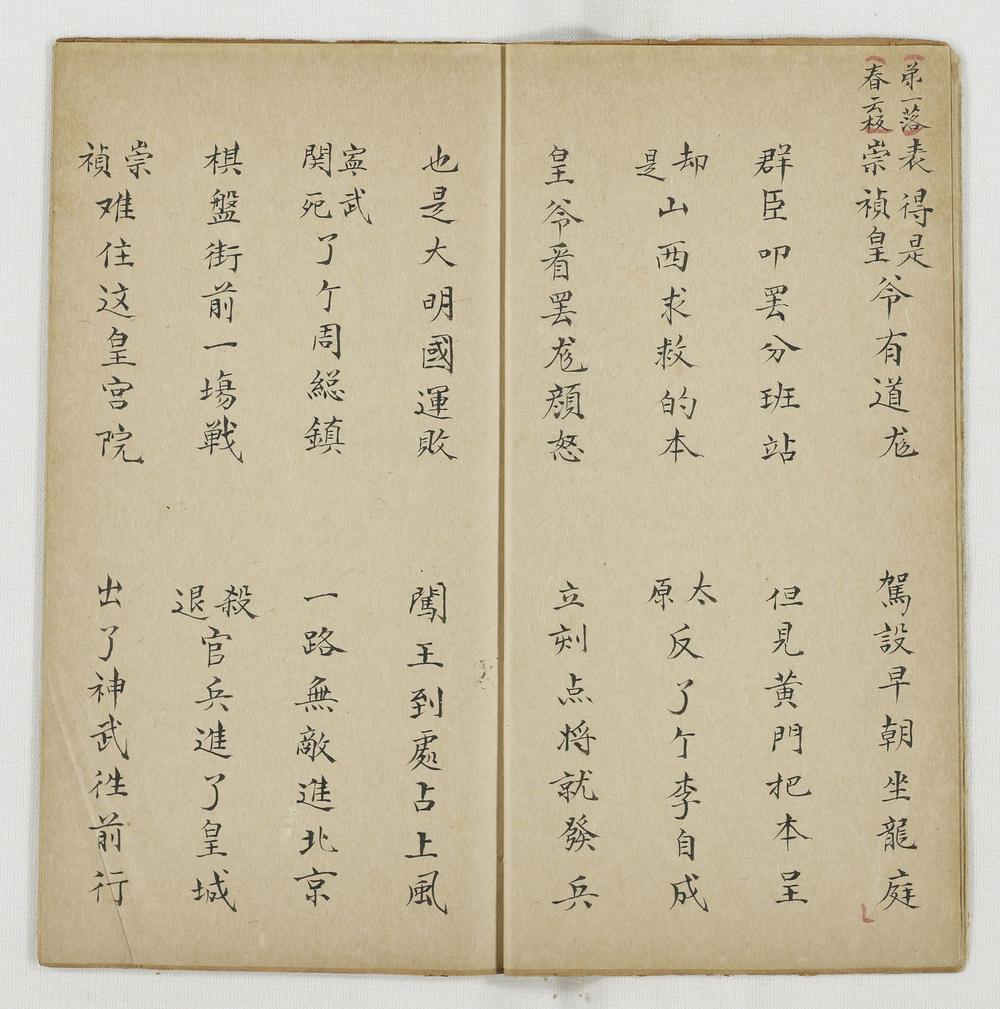 弟一落
春云板
表得是崇禎皇爷有道尨　駕設早朝坐龍庭
群臣叩罢分班站　但見黄門把本呈
却是山西求救的本　太原反了亇李自成
皇爷看罢尨顔怒　立刻点将就發兵
也是大明國運敗　闖王到處占上風
寧武関死了亇周総鎮　一路無敵進北京
棋盤街前一塲戰　殺退官兵進了皇城
崇禎难住这皇宫院　出了神武徃前行